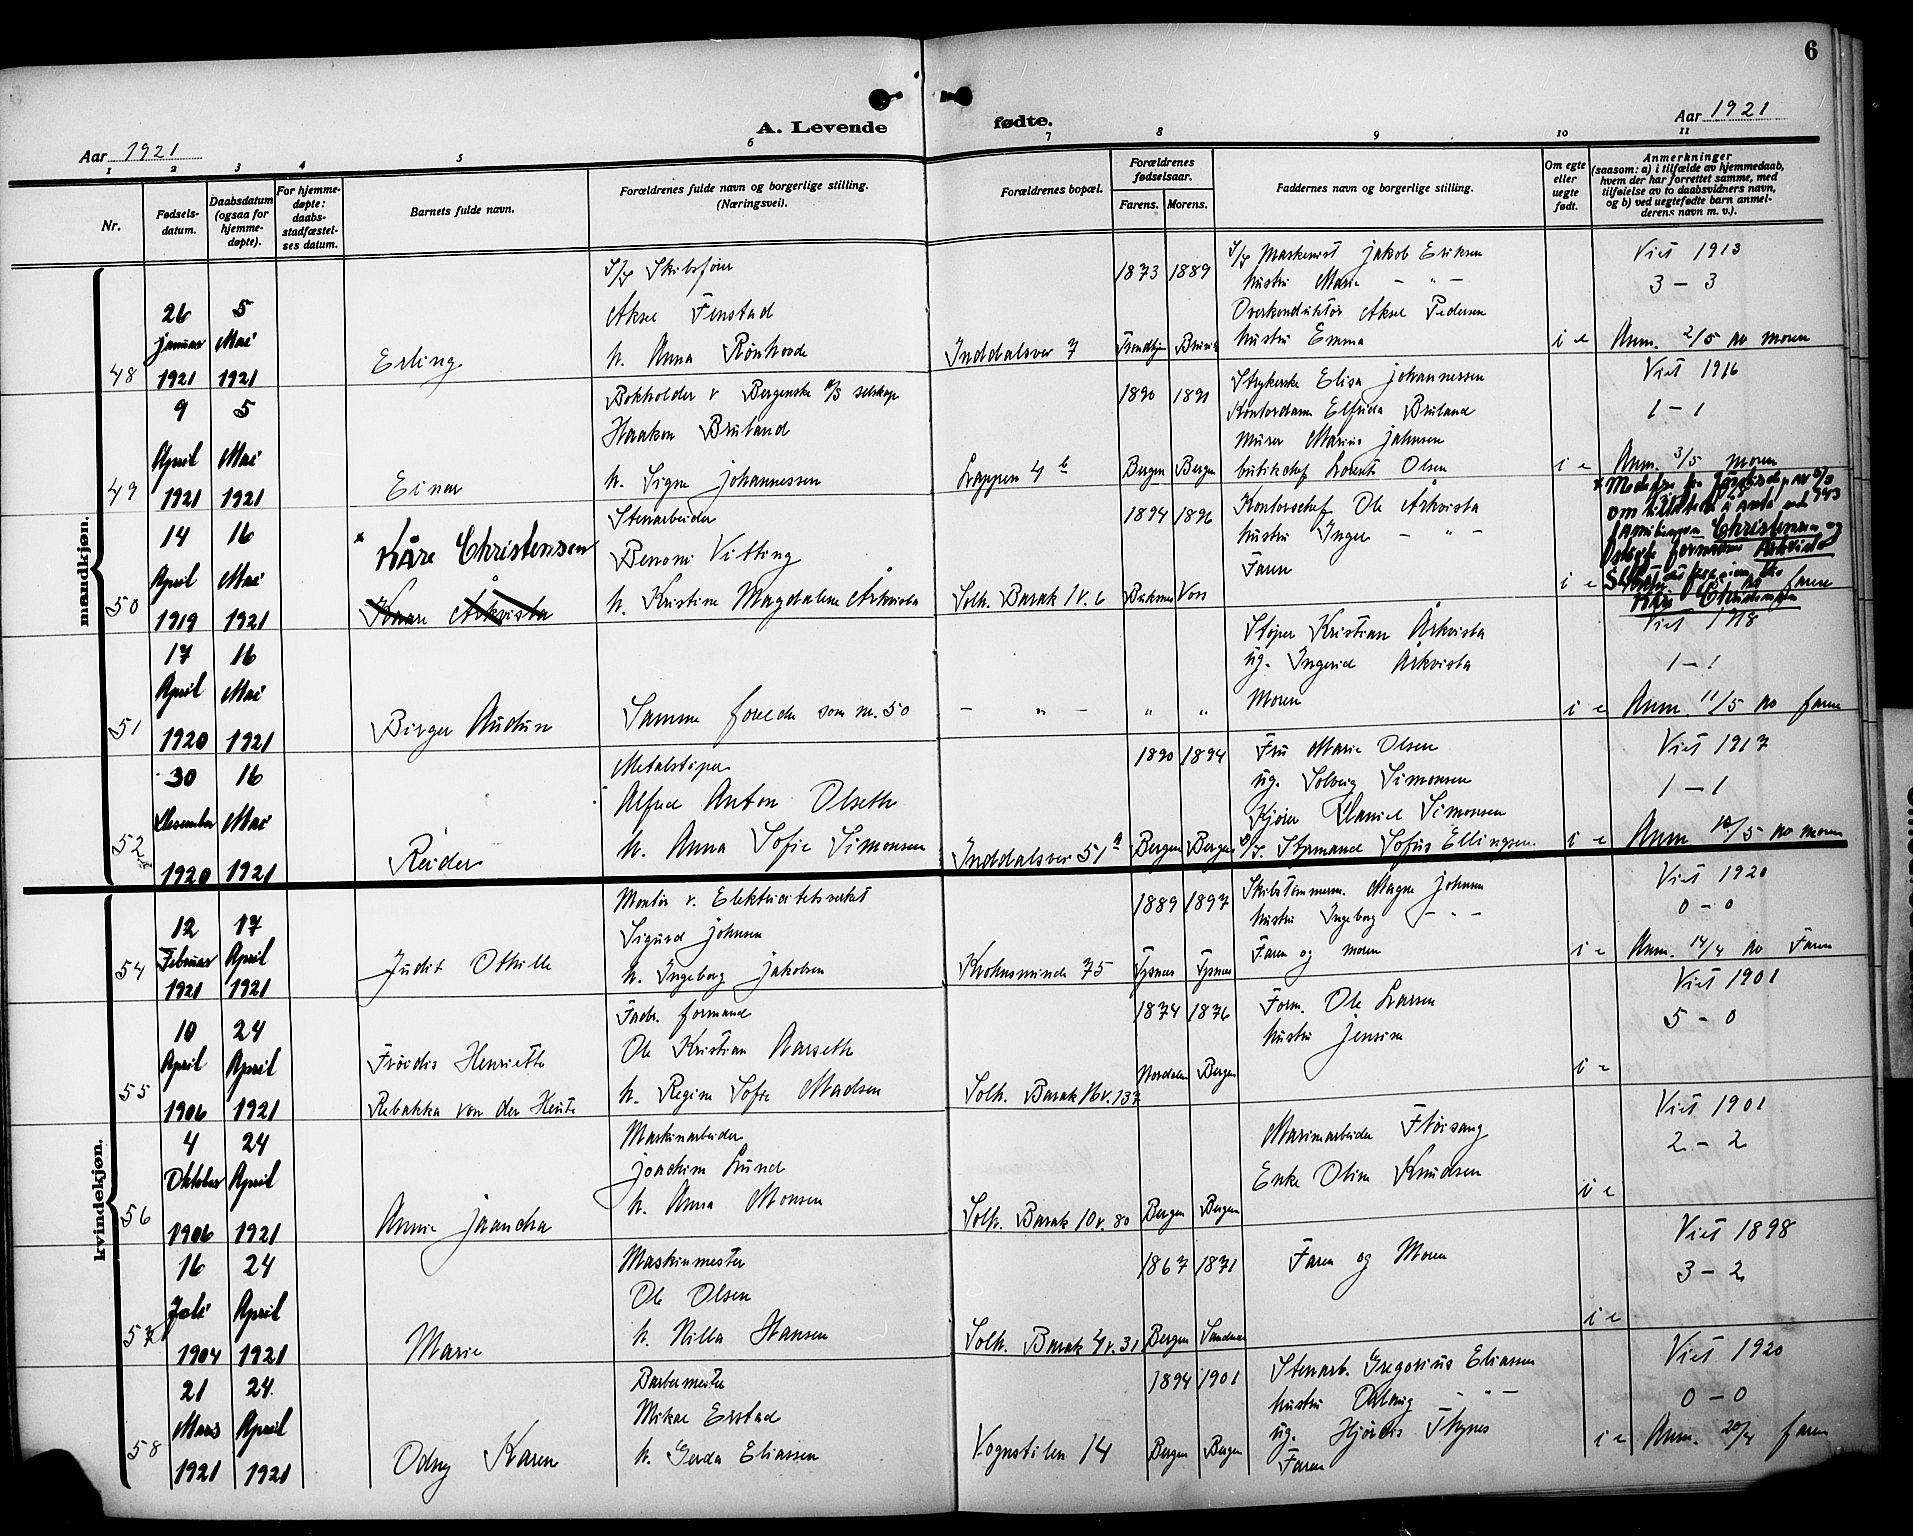 6
A. Levende fødte.
Aar 1921
Aar 1921
1 2 3 4 5 6 7 8 9 10 11
Nr.
Fødsels-
datum.
Daabsdatum
(ogsaa for
hjemme-
døpte).
For hjemme-
døpte:
daabs-
stadfæstel-
ses datum.
Barnets fulde navn.
Forældrenes fulde navn og borgerlige stilling.
(Næringsvei).
Forældrenes bopæl.
Forældrenes
fødselsaar.
Farens. Morens.
Faddernes navn og borgerlige stilling.
Om egte
eller
uegte
født.
Anmerkninger
(saasom: a) i tilfælde av hjemmedaab,
hvem der har forrettet samme, med
tilføielse av to daabsvidners navn,
og b) ved uegtefødte barn anmel-
derens navn m. v.).
mandkjøn.
48
26 januar 1921
5 Mai 1921
Erling
S/S Skibsfører
Aksel Finstad
h. Anna
Inddalsvei 7
1873 1889
S/S Maskinist Jakob Eriksen
hustru Marie - " -
Overkonduktør Aksel Pedersen
hustru Emma
i e
Viet 1913
3 - 3
Anm. 2/5 av moren
49
9 April 1921
5 Mai 1921
Einar
Bokholder v Bergenske D/S selskap
Haakon Bruland
h. Signe Johannessen
Lappen 4 b
1890 1891
Bergen Bergen
Strykerske Elisa Johannessen
Kontordame Elfrida Bruland
Murer Marius Johnsen
butikchef Lorentz Olsen
i e
Viet 1916
1 - 1
Anm. 3/5 moren
50
14 April 1919
16 Mai 1921
* Kåre Christensen
Kaare Årkvista
Stenarbeider
Benoni Vitting
h. Kristine Magdalene Årkvista
Solh. Barak 1 v. 6
1894 1896
Voss
Kontorchef Ole Årkvista
hustru Inger - " -
Faren
i e
familienavn Christensen og
Kåre Christensen
Viet 1918
51
17 April 1920
16 Mai 1921
Birger Audun
Samme foreldre som nr. 50
- " -
" "
Støper Kristian Årkvista
ug. Ingerid Årkvista
Moren
i e
1 - 1
Anm. 11/5 av faren
52
30 Desember 1920
16 Mai 1921
Reidar
Metalstøper
Alfred Anton Olseth
h. Anna Sofie Simonsen
Inddalsvei 51 a
1890 1894
Bergen Bergen
Fru Marie Olsen
ug. Solveig Simonsen
Kjører Daniel Simonsen
D/S. Styrmand Sofus Ellingsen.
i e
Viet 1917
1 - 1
Anm. 10/5 av moren
kvindekjøn.
54
12 Februar 1921
17 April 1921
Judit Othilie
Montør v. Elektricitetsverket
Sigurd Johnsen
h. Ingeborg Jakobsen
Krohnsminde 75
1889 1897
Tysnes Tysnes
Skibstømmerm. Magne Johnsen
hustru Ingeborg - " -
Faren og moren
i e
Viet 1920
0 - 0
Anm. 14/4 av Faren
55
10 April 1906
24 April 1921
Frøidis Henriette
Rebekka von der Heute
Fabr. formand
Ole Kristian Aarseth
h. Regine Sofie Madsen
Solh. Barak 16 v. 137
1874 1876
Nordalen Bergen
Form. Ole Larsen
hustru Jensine
i e
Viet 1901
5 - 0
56
4 Oktober 1906
24 April 1921
Annie Jaandra
Maskinarbeider
Joachim Lund
h. Anna Monsen
Solh. Barak 10 v. 80
Bergen Bergen
Marinearbeider Fløisang
Enke Olina Knudsen
i e
Viet 1901
2 - 2
57
16 Juli 1904
24 April 1921
Marie
Maskinmester
Ole Olsen
h. Nilla Hansen
Solh. Barak 4 v. 31
1867 1871
Bergen
Faren og Moren
i e
Viet 1898
3 - 2
58
21 Mars 1921
24 April 1921
Odny Karen
Barbermester
Mikal Erstad
h. Gerda Eliassen
Vognstølen 14
1894 1901
Bergen Bergen
Stenarb. Gregorius Eliassen
hustru - " -
ug. Hjørdis
Faren
i e
Viet 1920
0 - 0
Anm. 20/4 faren